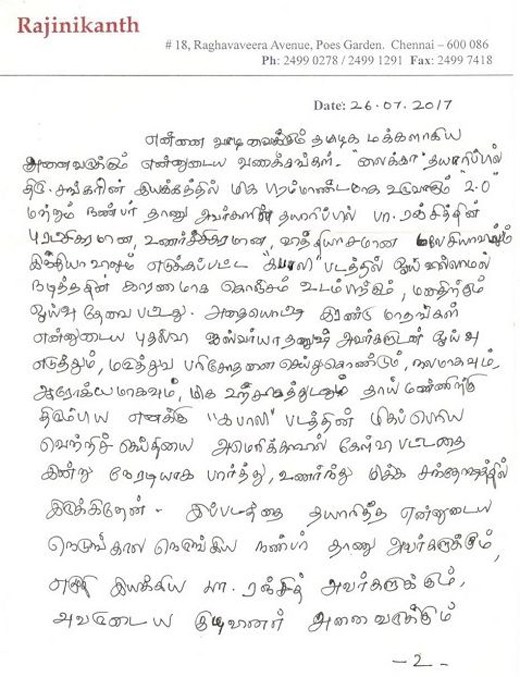 Rajinikanth
# 18, Raghavaveera Avenue, Poes Garden. Chennai – 600 086
Ph: 2499 0278 / 2499 1291 Fax: 2499 7418
Date: 26.07.2017
என்னை வாழ வைக்கும் தமிழக மக்களாகிய
அனைவருக்கும் என்னுடைய வணக்கங்கள். "லைக்கா" தயாரிப்பில்
திரு. சங்கரின் இயக்கத்தில் மிக பிரம்மாண்டமாக உருவாகும் "2.0"
மற்றும் நண்பர் தாணு அவர்களின் தயாரிப்பில் பா. ரஞ்சித்தின்
புரட்சிகரமான, உணர்ச்சிகரமான, வித்தியாசமான மலேசியாவிலும்
இந்தியாவிலும் எடுக்கப்பட்ட "கபாலி" படத்தில் ஓய்வில்லாமல்
நடித்ததின் காரணமாக கொஞ்சம் உடம்பிற்கும், மனதிற்கும்
ஓய்வு தேவை பட்டது. அதையொட்டி இரண்டு மாதங்கள்
என்னுடைய புதல்வி ஐஸ்வர்யா தனுஷ் அவர்களுடன் ஓய்வு
எடுத்தும், மருத்துவ பரிசோதனை செய்துகொண்டும், நலமாகவும்,
ஆரோக்யமாகவும், மிக உற்சாகத்துடனும் தாய் மண்ணிற்கு
திரும்பிய எனக்கு "கபாலி" படத்தின் மிகப் பெரிய
வெற்றிச் செய்தியை அமெரிக்காவில் கேள்வி பட்டதை
இன்று நேரடியாக பார்த்து, உணர்ந்து மிக்க சந்தோஷத்தில்
இருக்கிறேன். இப்படத்தை தயாரித்த என்னுடைய
நெடுங்கால நெருங்கிய நண்பர் தாணு அவர்களுக்கும்,
எழுதி இயக்கிய பா. ரஞ்சித் அவர்களுக்கும்,
அவருடைய குழுவினர் அனைவருக்கும்
-2-